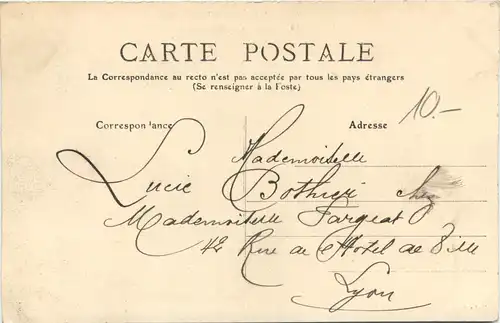 CARTE POSTALE
La Correspondance au recto n'est pas acceptée par tous les pays étrangers
(Se renseigner à la Poste)
10.—
Correspondance
Adresse
Mademoiselle
Lucie Bothier chez
Mademoiselle Fargeat
42 Rue de l'Hotel de Ville
Lyon